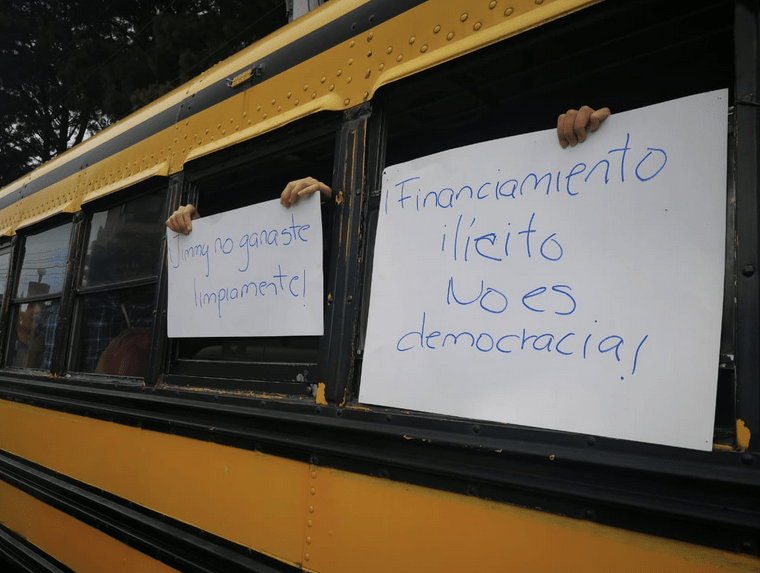 ¡Jimmy no ganaste
limpiamente!
¡Financiamiento
ilícito
No es
democracia!